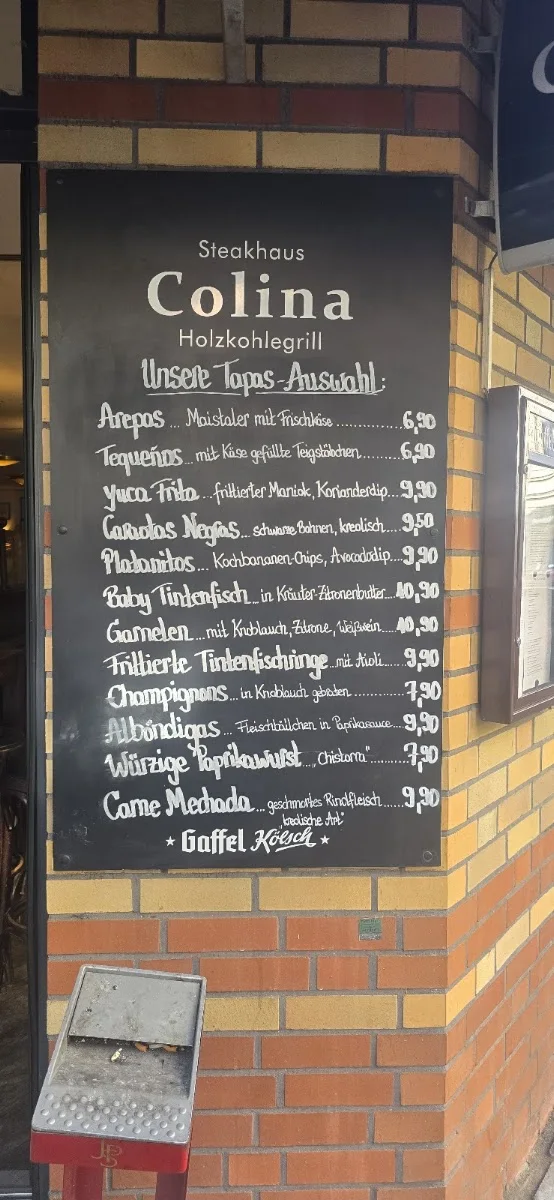 Steakhaus
Colina
Holzkohlegrill
Unsere Tapas-Auswahl:
Arepas ... Maistaler mit Frischkäse ............... 6,90
Tequeños ... mit Käse gefüllte Teigstäbchen ......... 6,90
Yuca Frita ... frittierter Maniok, Korianderdip ... 9,90
Caraotas Negras ... schwarze Bohnen, kreolisch ... 9,50
Platanitos ... Kochbananen-Chips, Avocadodip ... 9,90
Baby Tintenfisch ... in Kräuter-Zitronenbutter ... 10,90
Garnelen ... mit Knoblauch, Zitrone, Weißwein ..... 10,90
Frittierte Tintenfischringe ... mit Aioli ..... 9,90
Champignons ... in Knoblauch gebraten ............ 7,90
Albóndigas ... Fleischbällchen in Paprikasauce ... 9,90
Würzige Paprikawurst ... „Chistorra" ........ 7,90
Carne Mechada ... geschmortes Rindfleisch ... 9,90
„kreolische Art"
Gaffel Kölsch
JPS